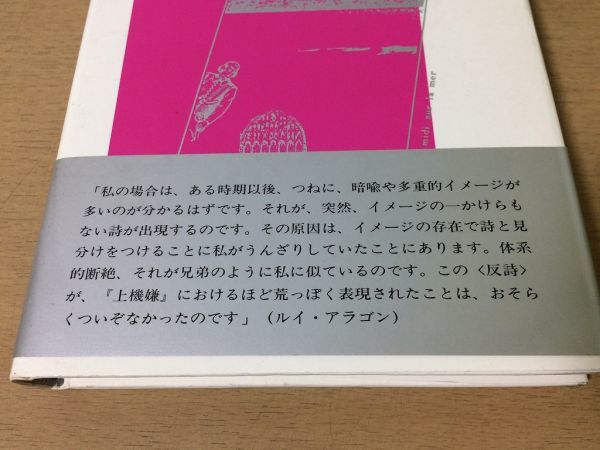 midi sur la mer
「私の場合は、ある時期以後、つねに、暗喩や多重的イメージが
多いのが分かるはずです。それが、突然、イメージの一かけらも
ない詩が出現するのです。その原因は、イメージの存在で詩と見
分けをつけることに私がうんざりしていたことにあります。体系
的断絶、それが兄弟のように私に似ているのです。この〈反詩〉
が、『上機嫌』におけるほど荒っぽく表現されたことは、おそら
くついぞなかったのです」(ルイ・アラゴン)